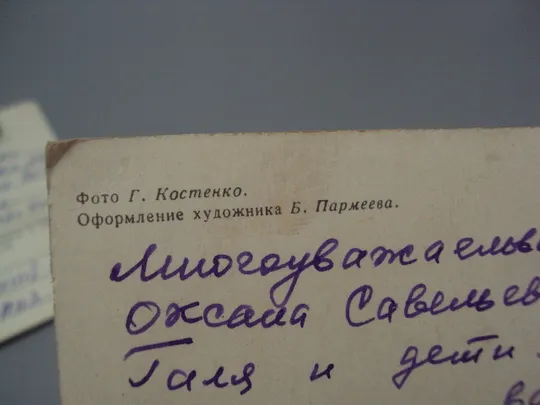 Фото Г. Костенко.
Оформление художника Б. Пармеева.
Многоуважаемы
Оксана Савельев
Галя и дети